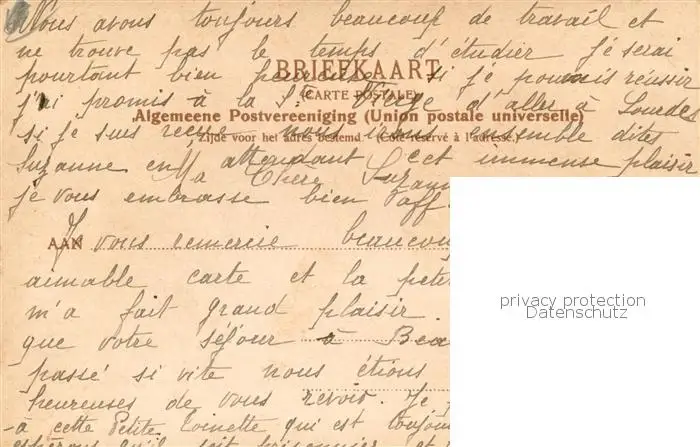 Nous avons toujours beaucoup de travail et
ne trouve pas le temps d'étudier je serai
BRIEFKAART
pourtant bien heureuse si je pouvais réussir
(CARTE POSTALE)
j'ai promis à la Ste Vierge d'aller à Lourdes
Algemeene Postvereeniging (Union postale universelle)
si je suis reçue nous irons ensemble dites
Zijde voor het adres bestemd. (Côté réservé à l'adresse.)
Suzanne en attendant cet immense plaisir
je vous embrasse bien aff.
Ma Chère Suzanne
AAN
Je vous remercie beaucou
aimable carte et la peti
m'a fait grand plaisir.
que votre séjour à Bea
passé si vite nous étions
heureuses de vous revoir. Je
à cette Petite Toinette qui est toujou
espérons qu'il soit prisonnier et
privacy protection
Datenschutz